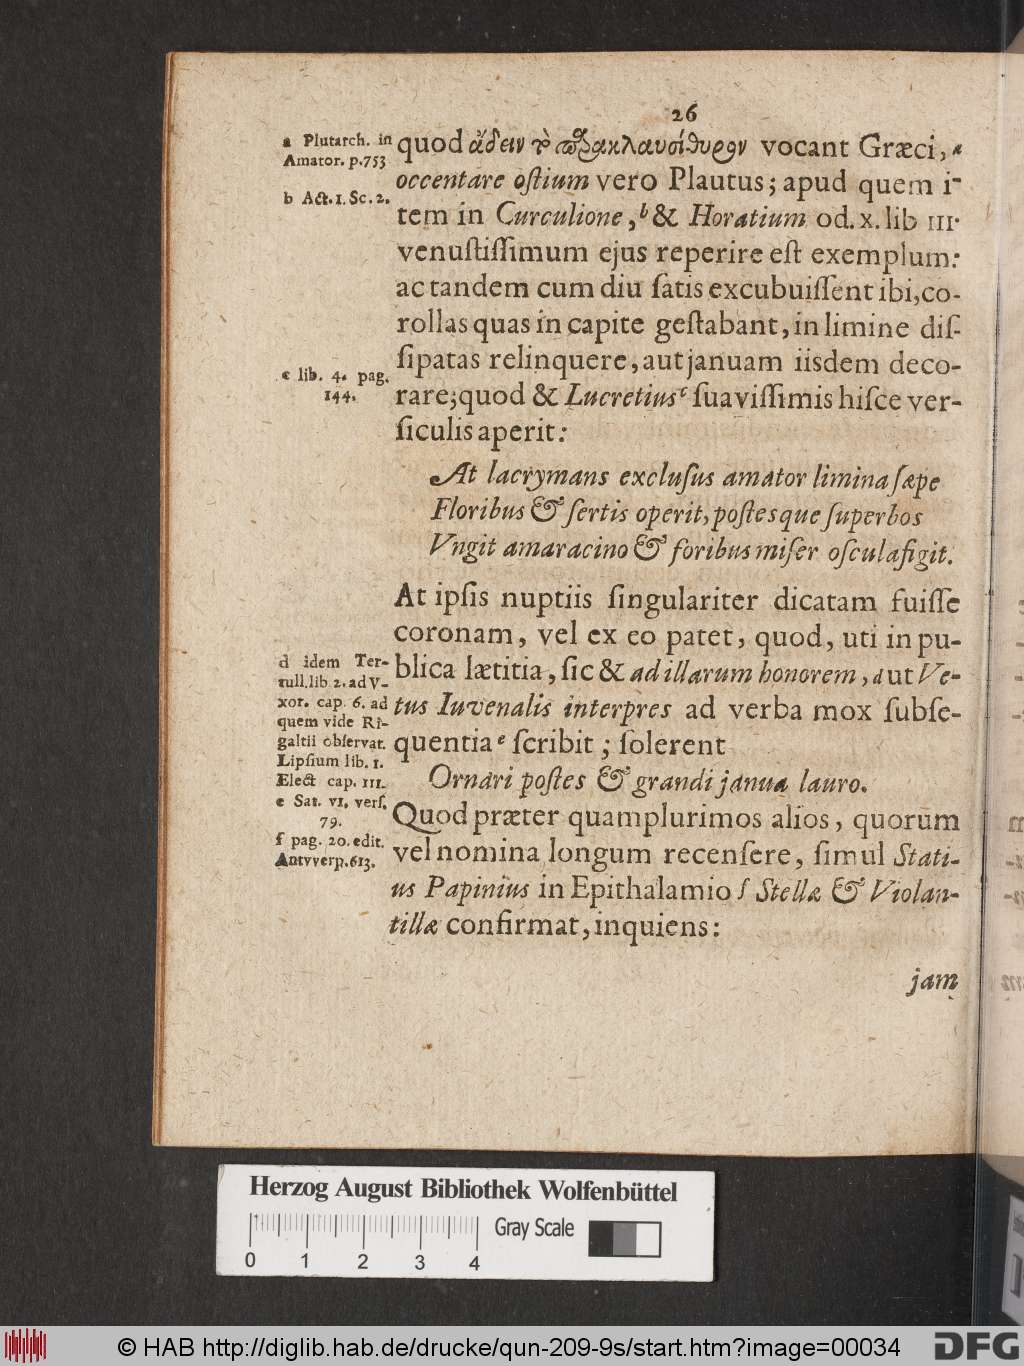 26
quod ἄδειν τὸ παρακλαυσίθυρον vocant Græci, a
occentare oſtium vero Plautus; apud quem i-
tem in Curculione, b & Horatium od. x. lib III.
venuſtiſſimum ejus reperire eſt exemplum:
ac tandem cum diu ſatis excubuiſſent ibi, co-
rollas quas in capite geſtabant, in limine diſ-
ſipatas relinquere, aut januam iisdem deco-
rare; quod & Lucretius c ſuaviſſimis hiſce ver-
ſiculis aperit:
At lacrymans excluſus amator limina ſæpe
Floribus & ſertis operit, poſtesque ſuperbos
Vngit amaracino & foribus miſer oſcula figit.
At ipſis nuptiis ſingulariter dicatam fuiſſe
coronam, vel ex eo patet, quod, uti in pu-
blica lætitia, ſic & ad illarum honorem, d ut Ve-
tus Iuvenalis interpres ad verba mox ſubſe-
quentia e ſcribit; ſolerent
Ornari poſtes & grandi janua lauro.
Quod præter quamplurimos alios, quorum
vel nomina longum recenſere, ſimul Stati-
us Papinius in Epithalamio f Stellæ & Violan-
tillæ confirmat, inquiens:
jam
a Plutarch. in
Amator. p. 753
b Act. 1. Sc. 2.
c lib. 4. pag.
144.
d idem Ter-
tull. lib 2. ad V-
xor. cap. 6. ad
quem vide Ri-
galtii obſervat.
Lipſium lib. 1.
Elect cap. III.
e Sat. VI, verſ.
79.
f pag. 20. edit.
Antvverp. 613.
Herzog August Bibliothek Wolfenbüttel
Gray Scale
0 1 2 3 4
© HAB http://diglib.hab.de/drucke/qun-209-9s/start.htm?image=00034
DFG